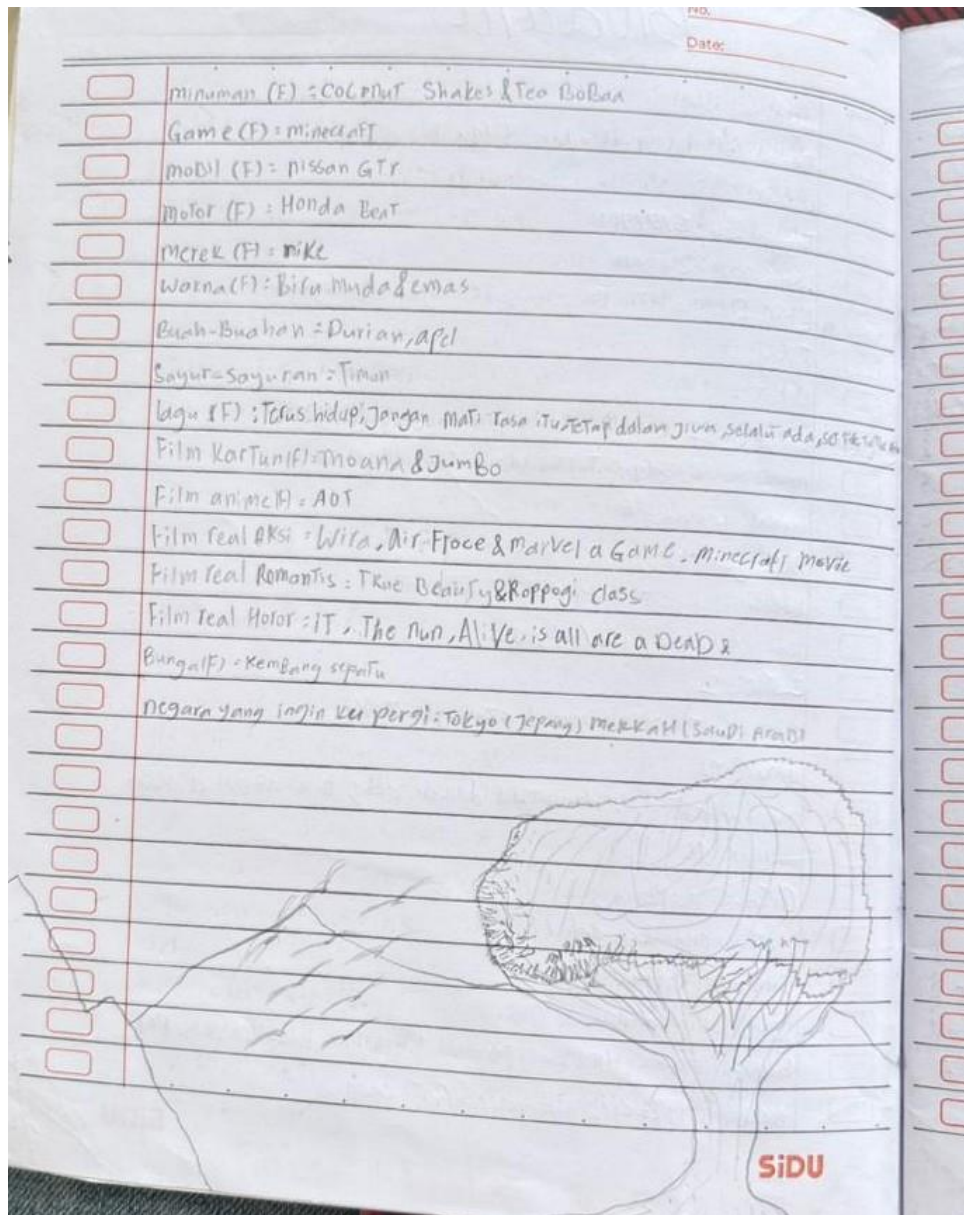 No.
Date:
minuman (F) : COCONUT Shakes & Tea BoBaa
Game (F) : minecraft
moBil (F) : nissan GTr
moTor (F) : Honda BeaT
merek (F) : nike
warna (F) : Biru muda & emas
Buah-Buahan : Durian, apel
Sayur-sayuran : Timun
lagu (F) : Terus hidup, Jangan maTi rasa iTu, TeTap dalam Jiwa, selalu ada,
Film KarTun (F) : moana & JumBo
Film anime (F) : AOT
Film real AKsi : Wira, Air Froce & marvel a Game, Minecraft movie
Film real RomanTis : TRue BeauTy & Roppogi class
Film real Horor : iT, The nun, AliVe, is all are a DeaD &
Bunga (F) : KemBang sepaTu
negara yang ingin pergi : Tokyo (Jepang) meKKaH (SauDi AraB)
SiDU